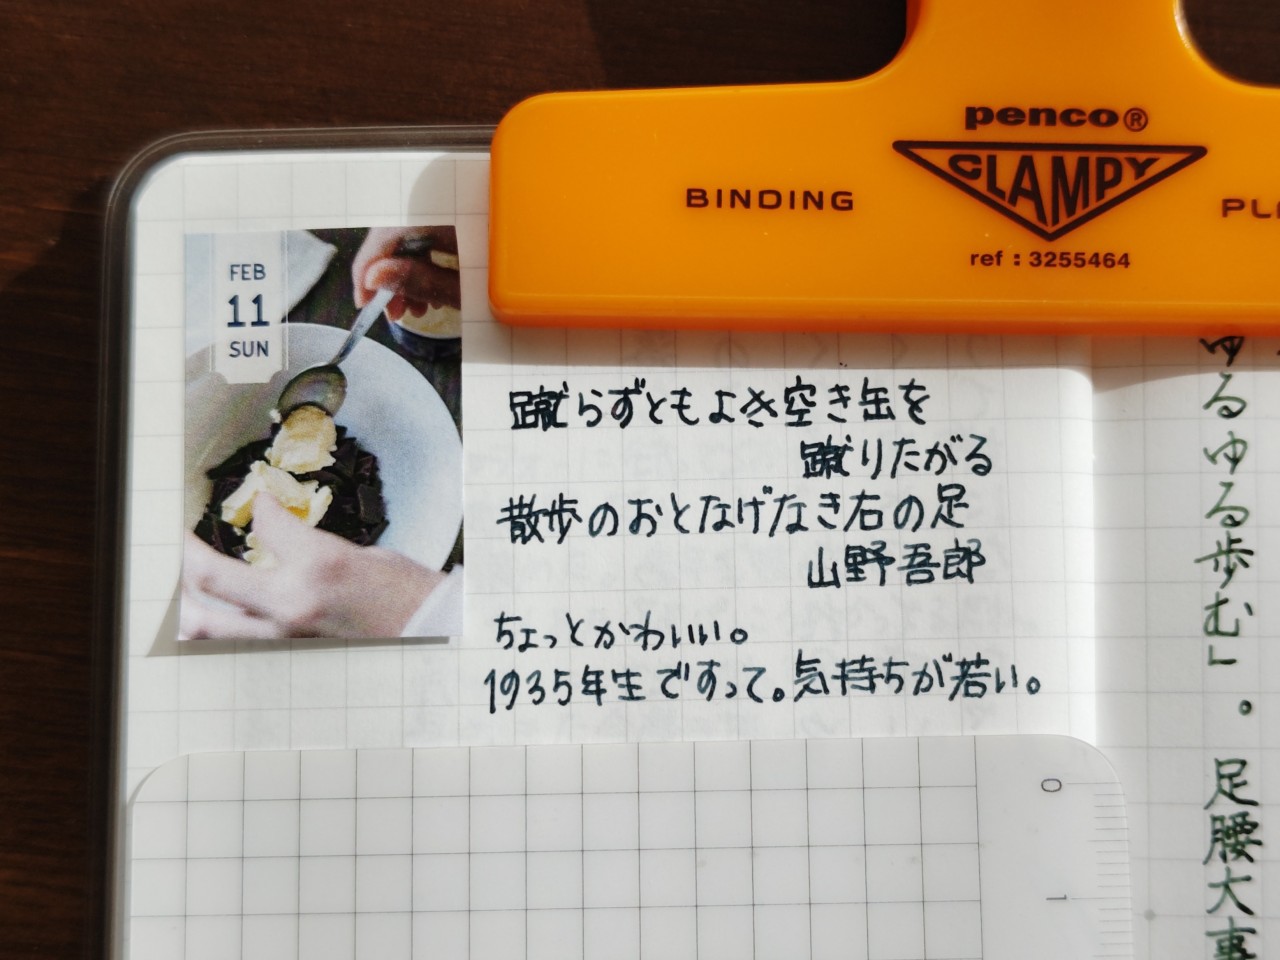 penco®
CLAMPY
BINDING
ref : 3255464
FEB
11
SUN
蹴らずともよき空き缶を
蹴りたがる
散歩のおとなげなき右の足
山野吾郎
ちょっとかわいい。
1935年生ですって。気持ちが若い。
0
1
ゆるゆる歩む」。足腰大事